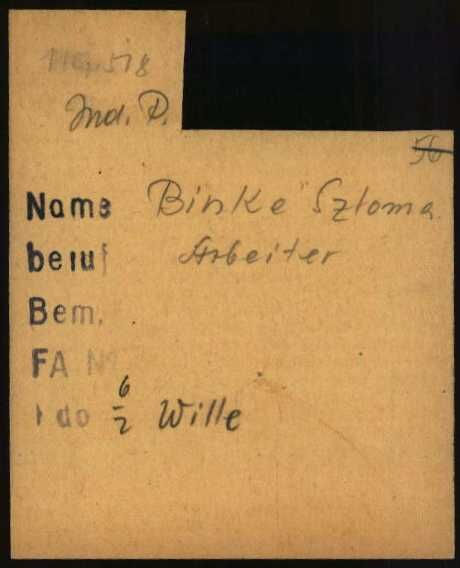 518
Jnd. P.
56
Name Binke Szloma
beruf Arbeiter
Bem.
FA №
do 6/2 Wille